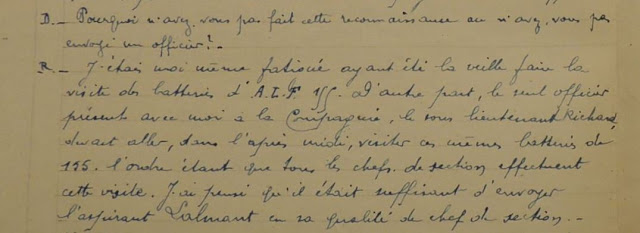 D. - Pourquoi n'avez-vous pas fait cette reconnaissance ou n'avez-vous pas
envoyé un officier? -
R. - J'étais moi même fatigué ayant été la veille faire la
visite des batteries d'A.L.F 155. D'autre part, le seul officier
présent avec moi à la Compagnie, le sous lieutenant Richard,
devait aller, dans l'après midi, visiter ces mêmes batteries de
155. l'ordre étant que tous les chefs de section effectuent
cette visite. J'ai pensé qu'il était suffisant d'envoyer
l'aspirant Lalmant en sa qualité de chef de section. -